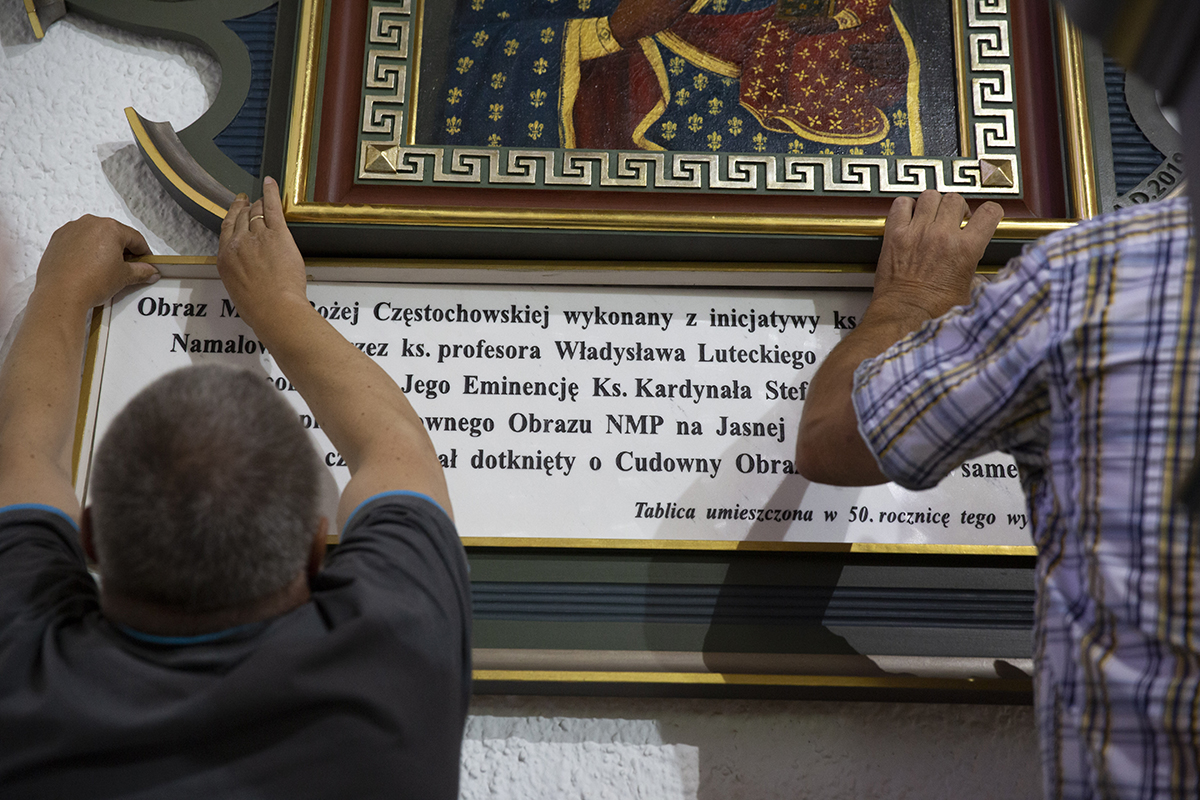 A.D. 2019
Obraz M Bożej Częstochowskiej wykonany z inicjatywy ks
Namalow zez ks. profesora Władysława Luteckiego
Jego Eminencję Ks. Kardynała Stef
wnego Obrazu NMP na Jasnej
ał dotknięty o Cudowny Obra same
Tablica umieszczona w 50. rocznicę tego wy